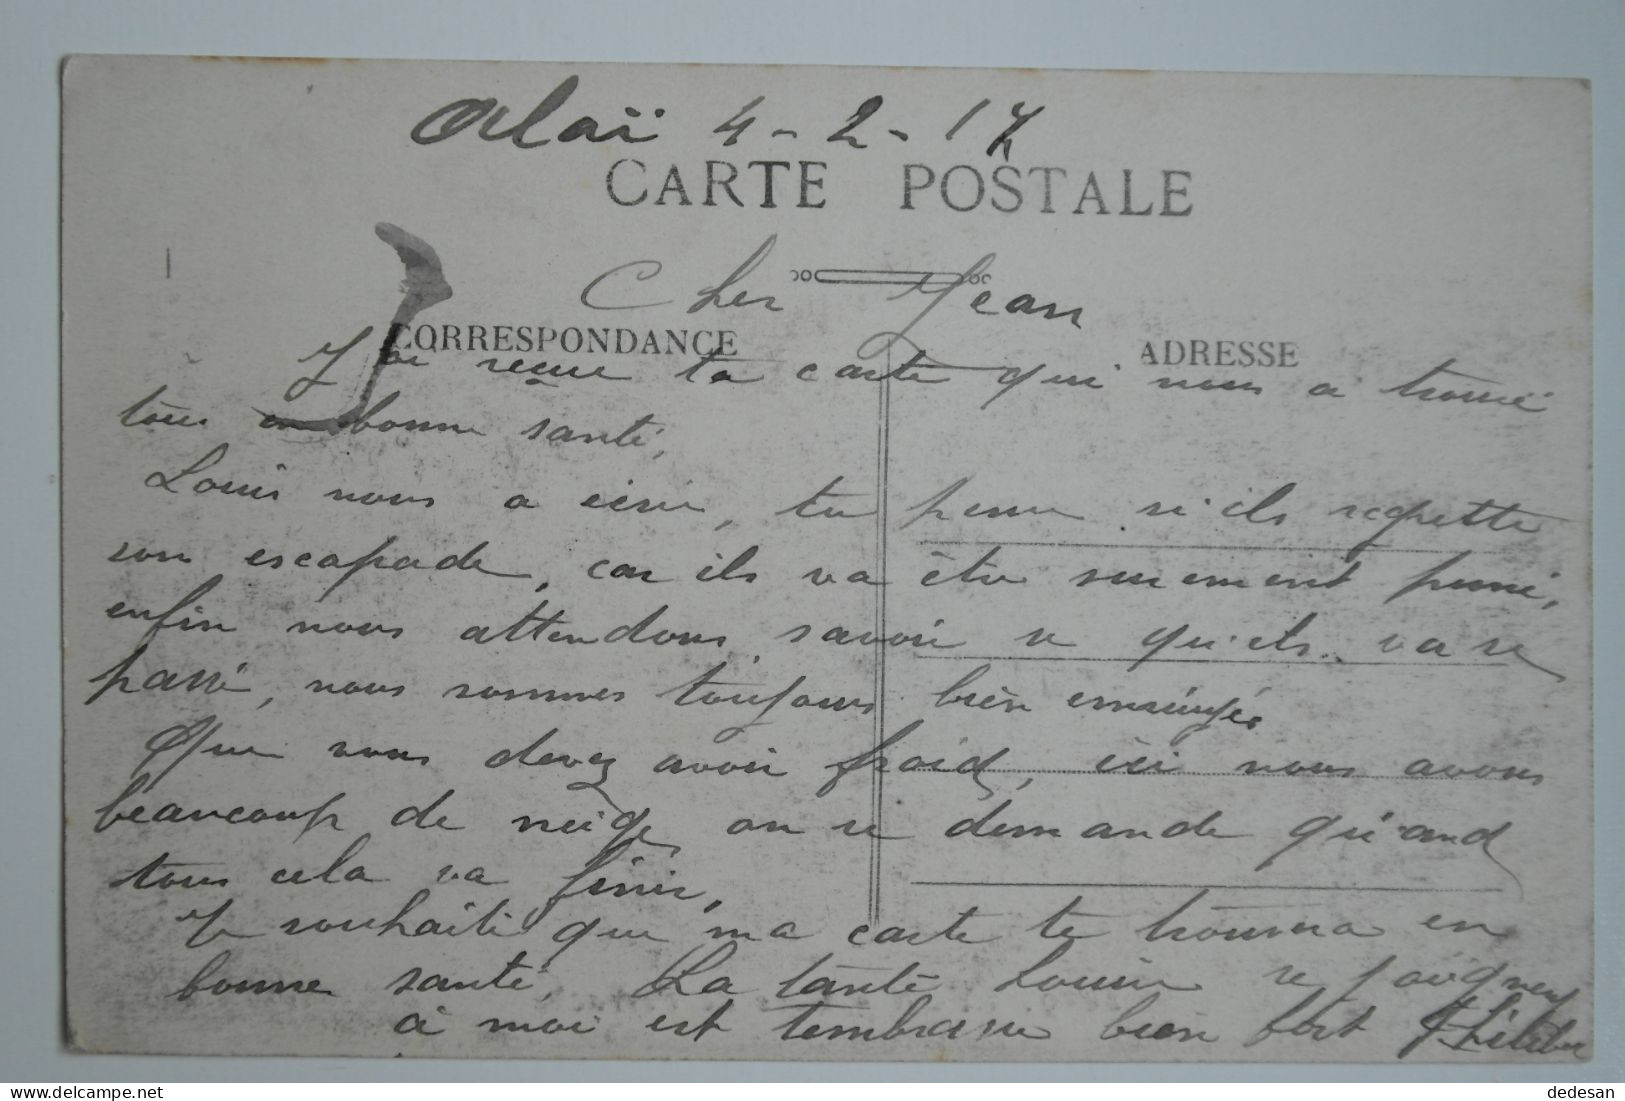 Alaï 4-2-17
CARTE POSTALE
Cher Jean
CORRESPONDANCE
ADRESSE
J'ai reçue ta carte qui nous a trouvé
tous en bonne santé,
Louis nous a écrit, tu pense si ils regrette
son escapade, car ils va être surement puni,
enfin nous attendons savoir se qu'ils va se
passé, nous sommes toujours bien ennuiyés
Que vous devez avoir froid, ici nous avons
beaucoup de neige on se demande qu'and
tous cela va finir,
Je souhaite que ma carte te trouvera en
bonne santé, La tante Louise se joignent
à moi est tembrasse bien fort
dedesan